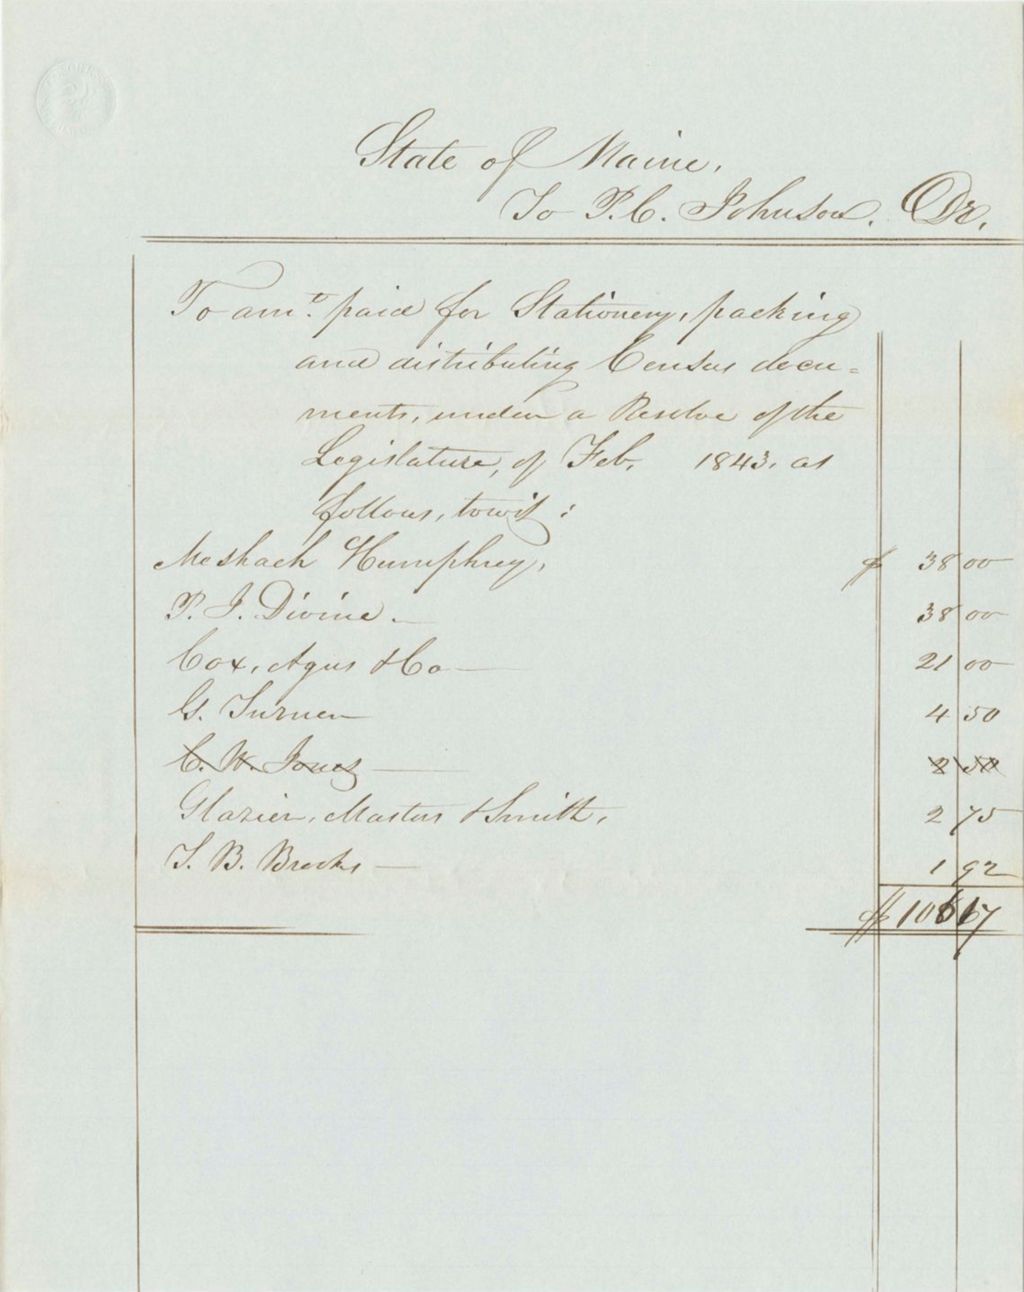 State of Maine,
To P. C. Johnson. Dr.
To amt. paid for Stationery, packing
and distributing Census docu=
ments, under a Resolve of the
Legislature, of Feb. 1843. as
follows, towit:
Meshach Humphrey, $ 38 00
P. J. Divine. 38 00
Cox, Agus & Co 21 00
G. Turner 4 50
C. W. Jones 2 50
Glazier, Masters & Smith, 2 75
T. B. Brooks 1 92
$ 106 17